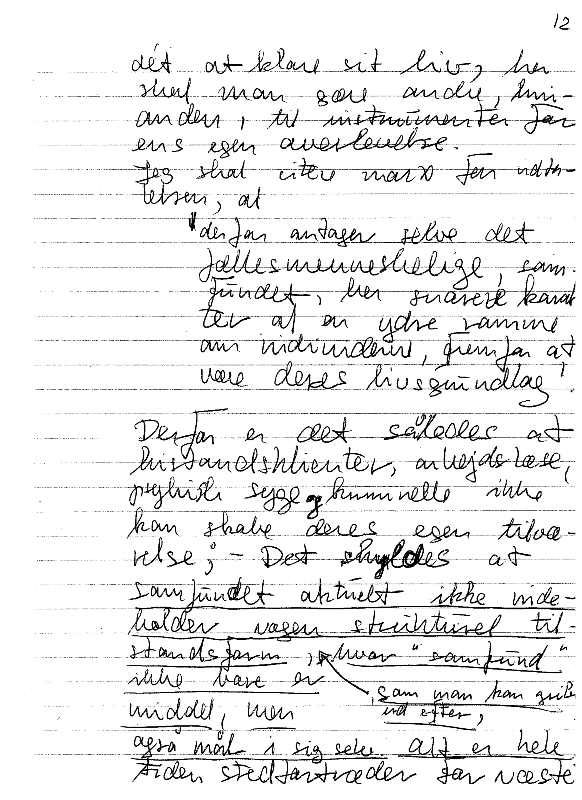 12
dét at klare sit liv, her
skal man gøre andre, hin-
anden, til instrumenter for
ens egen overlevelse.
Jeg skal citere marx for udta-
lelsen, at
"derfor antager selve det
fællesmenneskelige, sam-
fundet, her snarere karak
ter af en ydre ramme
om individerne, fremfor at
være deres livsgrundlag".
Derfor er det således at
bistandsklienter, arbejdsløse,
psykisk syge og kriminelle ikke
kan skabe deres egen tilvæ-
relse; - Det skyldes at
samfundet aktuelt ikke inde-
holder nogen strukturel til-
standsform, hvor "samfund"
ikke bare er
, som man kan gribe
ind efter,
middel, men
også mål i sig selv. Alt er hele
tiden stedfortræder for næste